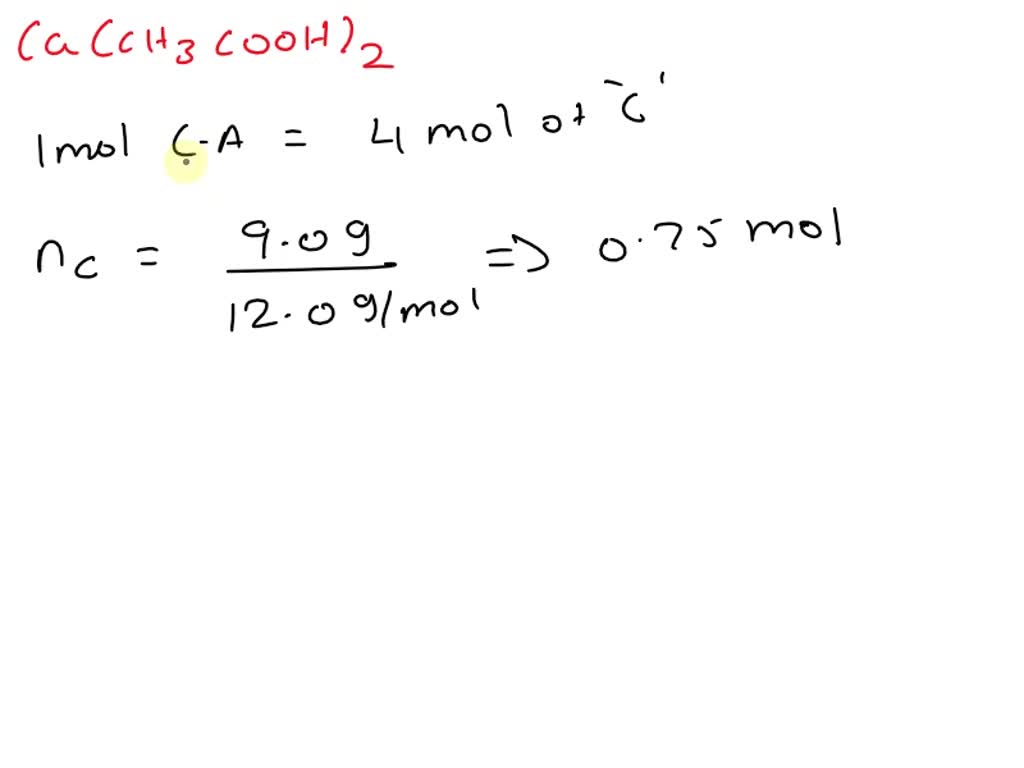 Ca(CH3COOH)2
1mol C-A = 4 mol of 'C'
nC = 9.0g / 12.0 g/mol => 0.75 mol